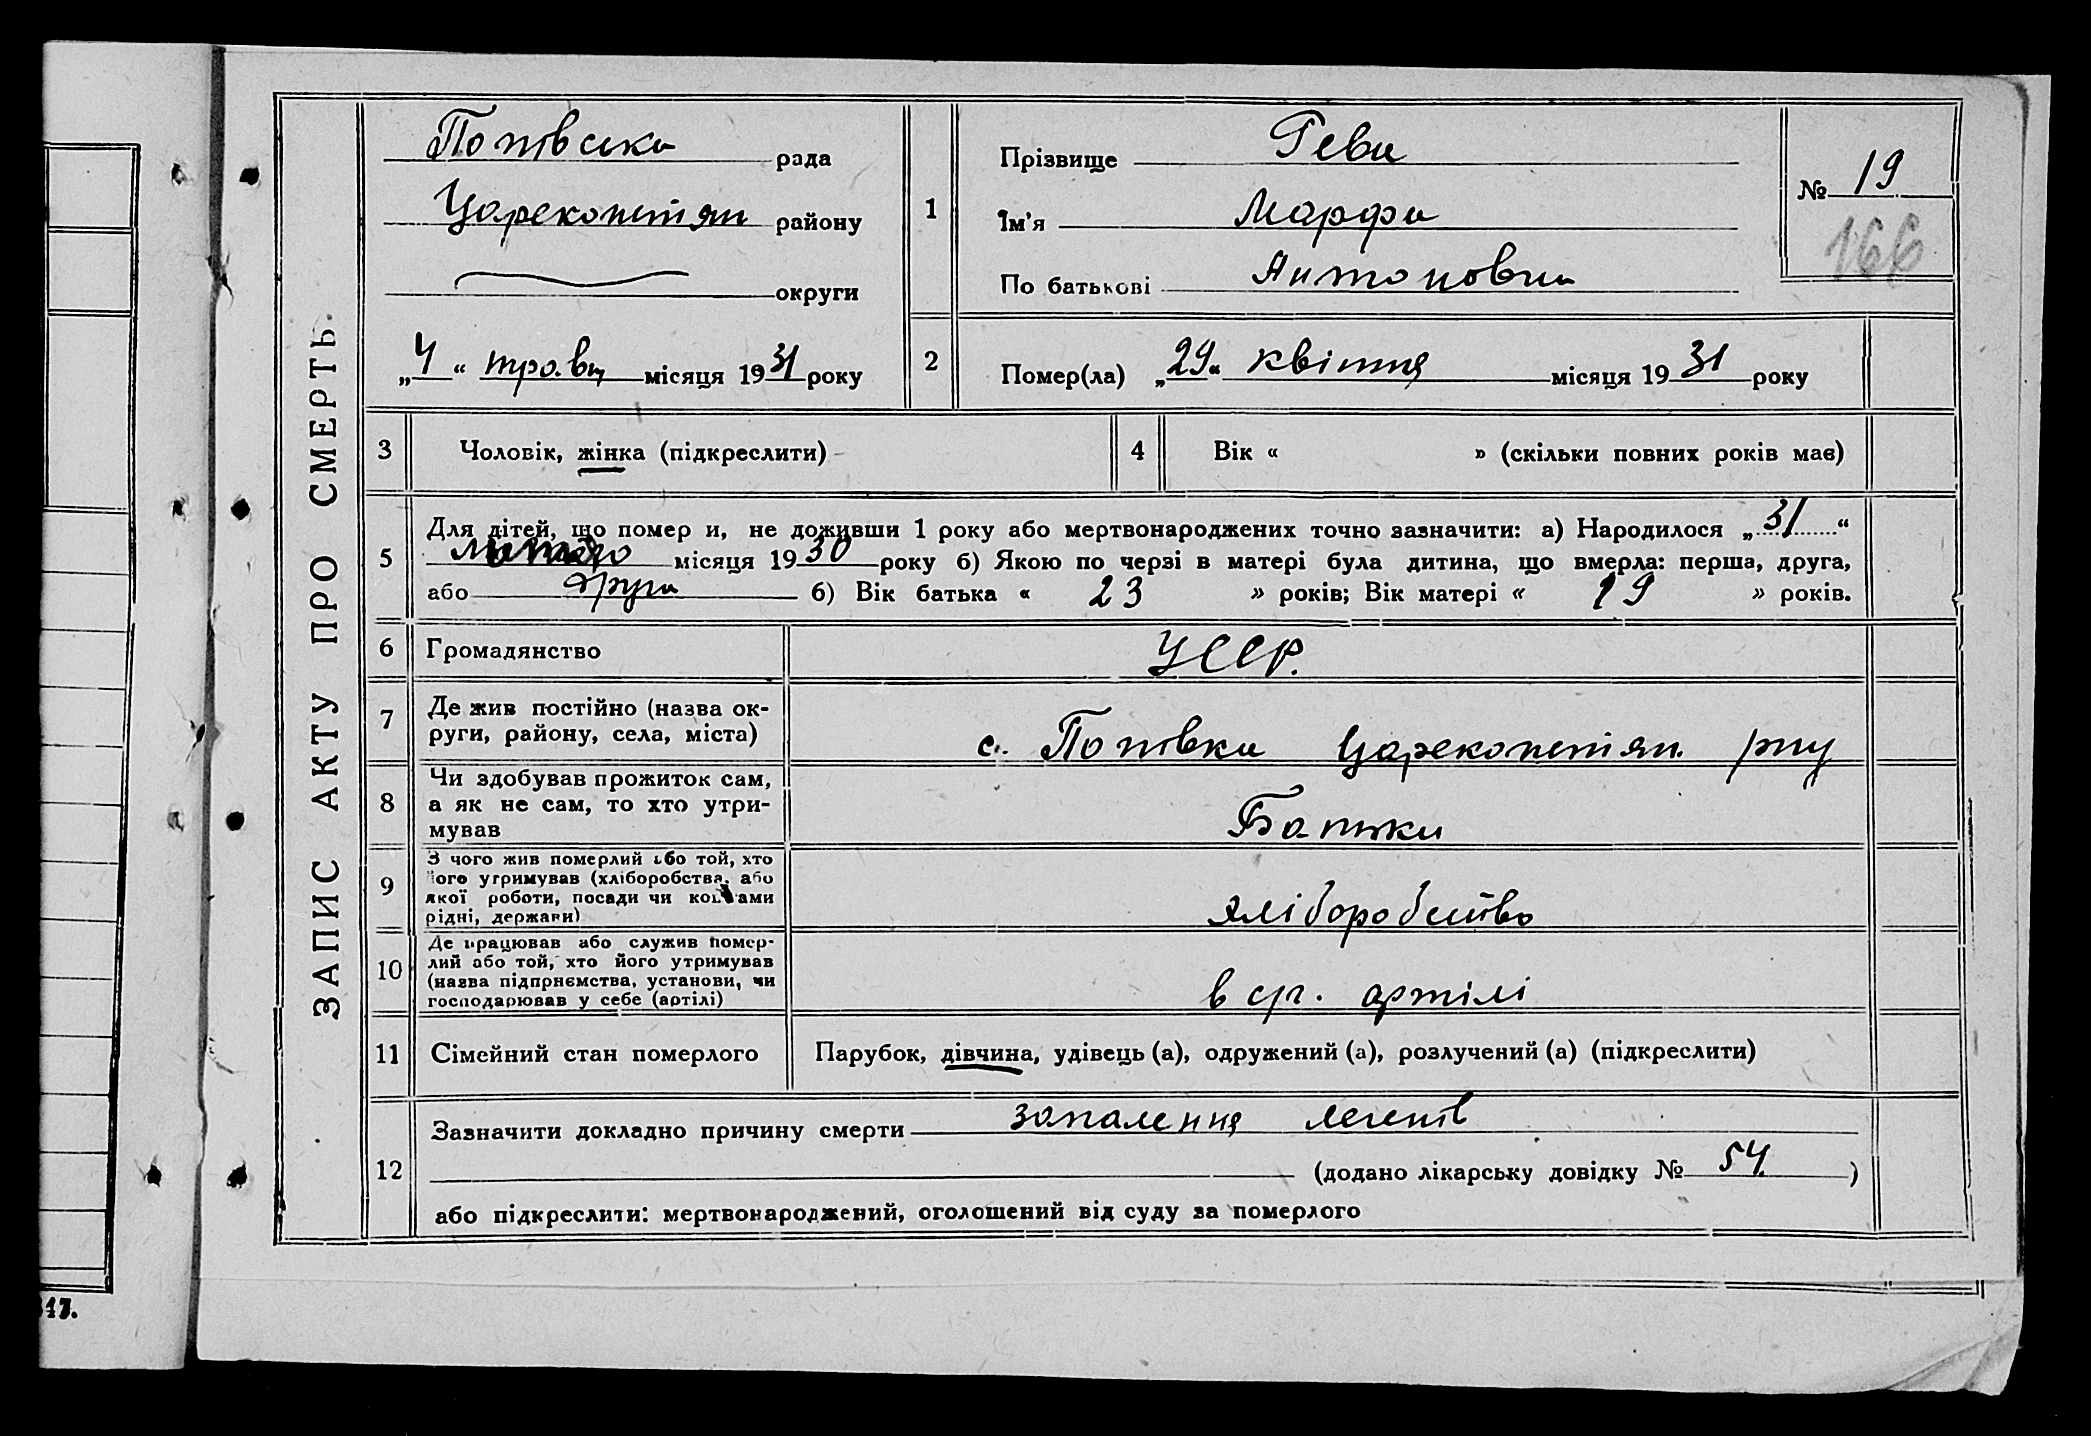 ЗАПИС АКТУ ПРО СМЕРТЬ.
Попівська рада
Царекопстян району
округи
„4“ травн місяця 1931 року
1
Прізвище Гева
Їм'я Марфа
По батькові Антоновна
№ 19
166
2
Помер(ла) „29“ квітня місяця 1931 року
3
Чоловік, жінка (підкреслити)
4
Вік « » (скільки повних років має)
5
Для дітей, що помер и, не доживши 1 року або мертвонароджених точно зазначити: а) Народилося „31“
місяця 1930 року б) Якою по черзі в матері була дитина, що вмерла: перша, друга,
або друга б) Вік батька « 23 » років; Вік матері « 19 » років.
6
Громадянство
УССР.
7
Де жив постійно (назва ок-
руги, району, села, міста)
с. Попівка Царекопстян. р-ну
8
Чи здобував прожиток сам,
а як не сам, то хто утри-
мував
Батьки
9
З чого жив померлий або той, хто
його утримував (хліборобства, або
якої роботи, посади чи коштами
рідні, держави)
хліборобство
10
Де працював або служив помер-
лий або той, хто його утримував
(назва підприємства, установи, чи
господарював у себе (артілі)
в с/г. артілі
11
Сімейний стан померлого
Парубок, дівчина, удівець (а), одружений (а), розлучений (а) (підкреслити)
12
Зазначити докладно причину смерти запалення легенів
(додано лікарську довідку № 54. )
або підкреслити: мертвонароджений, оголошений від суду за померлого
17.